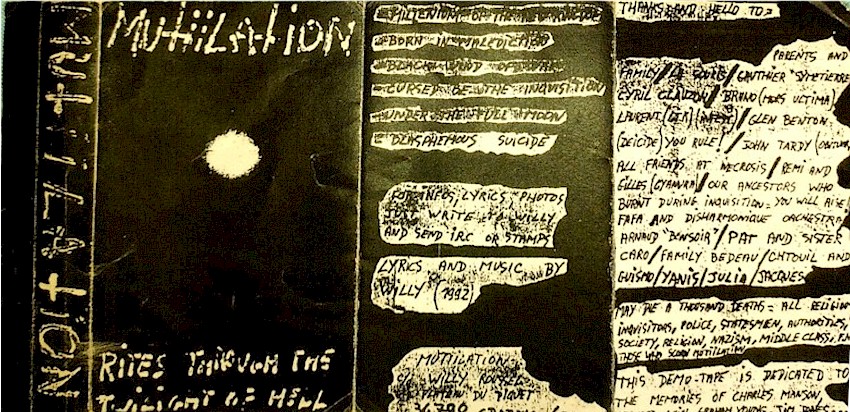 MUTIILATION
MUTIILATION
RITES THROUGH THE
TWILIGHT OF HELL
BORN IN MALEDICTION
CURSED OF THE INQUISITION
UNDER THE FULL MOON
BLASPHEMOUS SUICIDE
FOR INFOS, LYRICS, PHOTOS
JUST WRITE TO WILLY
AND SEND IRC OR STAMPS
LYRICS AND MUSIC BY
WILLY (1992)
MUTIILATION
WILLY ROUSSEL
THANKS AND HELLO TO:
PARENTS AND
FAMILY/LE SOURIS/GAUTHIER
CYRIL / BRUNO (MORS ULTIMA)
LAURENT / GLEN BENTON
(DEICIDE) YOU RULE! / JOHN TARDY
ALL FRIENDS AT NECROSIS / REMI AND
GILLES / OUR ANCESTORS WHO
BURNT DURING INQUISITION: YOU WILL RISE!
FAFA AND DISHARMONIQUE ORCHESTRA
ARNAUD "BONSOIR" / PAT AND SISTER
CARO / FAMILY BEDEAU / CHTOUIL AND
GUISMO / YANIS / JULIA / JACQUES
MAY DIE A THOUSAND DEATHS: ALL RELIGIOUS
INQUISITORS, POLICE, STATESMEN, AUTHORITIES,
SOCIETY, RELIGION, NAZISM, MIDDLE CLASS,
THIS DEMO-TAPE IS DEDICATED TO
THE MEMORIES OF CHARLES MANSON,